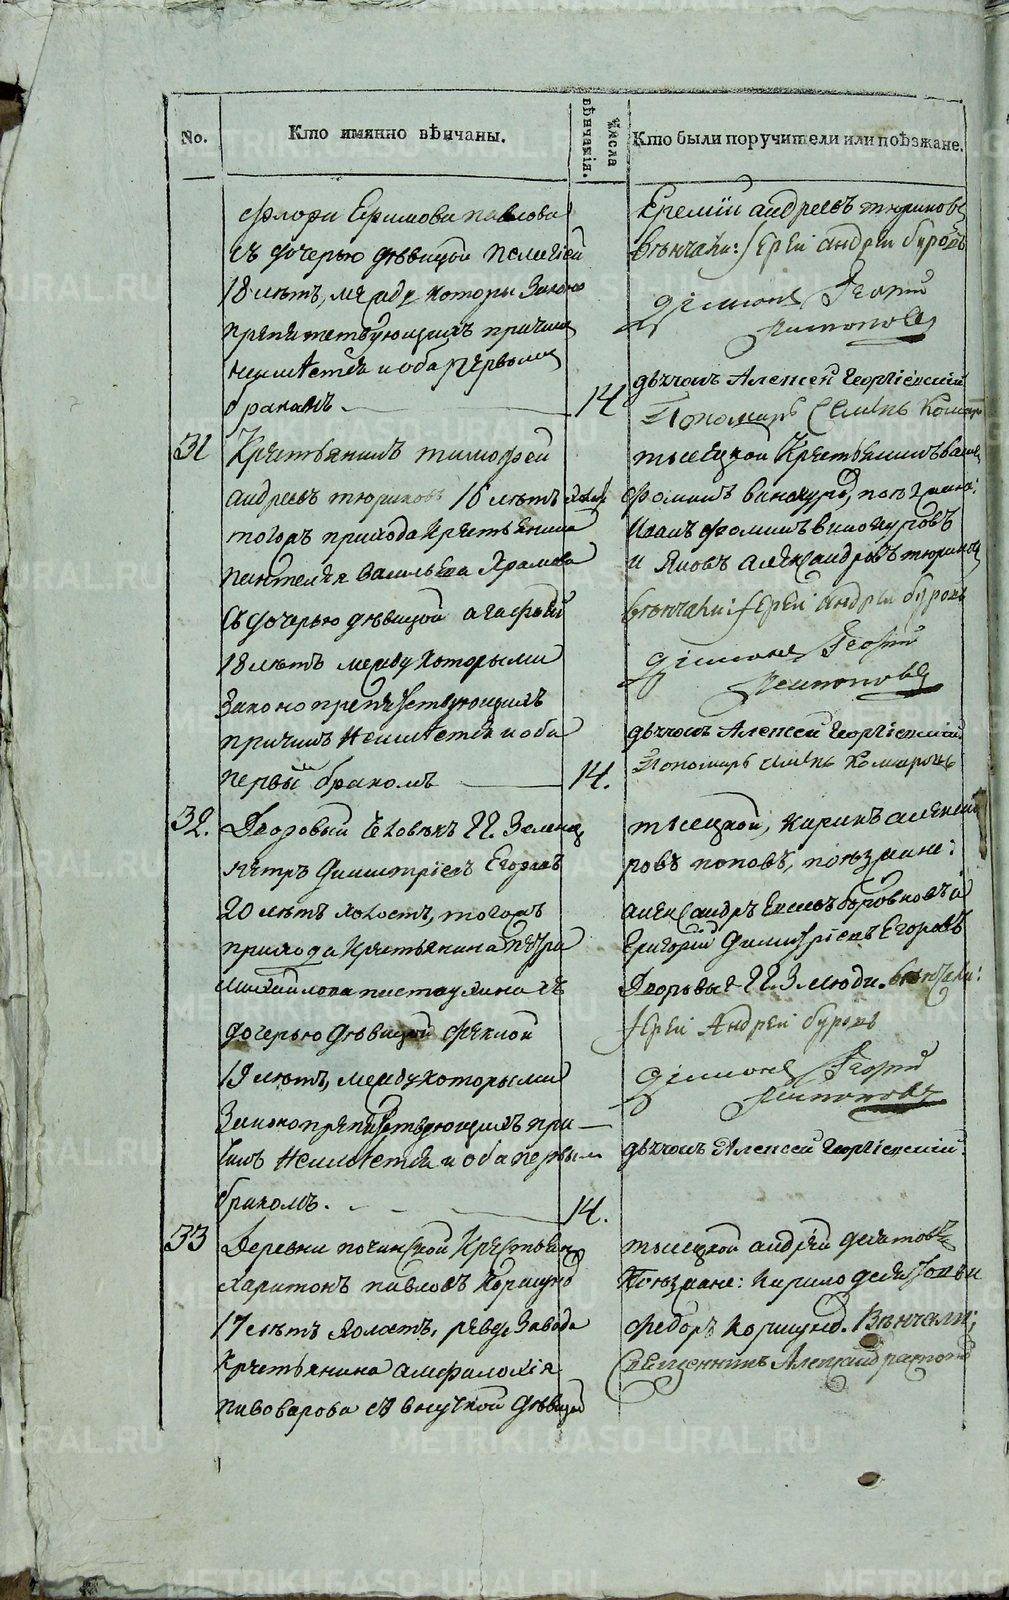 No.
Кто имянно вѣнчаны.
Числа вѣнчанія.
Кто были поручители или поѣзжане.
Флора Ефимова павлова
съ дочерью дѣвицой Пелагіей
18 лѣтъ, между которы Законо
препятствующихъ причинъ
неимѣется и оба первымъ
бракомъ. 14
Еремѣй андреевъ тюриковъ
вѣнчали: Іерей андрей буровъ
Діаконъ Георгій
дьячокъ Алексей Георгіевскій
Пономарь Семенъ Комаровъ
31
Крестьянинъ тимофей
андреевъ тюриковъ 16 лѣтъ
тогожъ прихода крестьянина
пантелея васильева Храмова
съ дочерью дѣвицой агафьей
18 лѣтъ между которыми
Законопрепятствующихъ
причинъ неимѣется и оба
первымъ бракомъ 14.
тысецкой Крестьянинъ
фоминъ винокуровъ, поезжана:
Иванъ фоминъ винокуровъ
и Яковъ александровъ тюриковъ
вѣнчали: Іерей андрей буровъ
Діаконъ Георгій
дьячокъ Алексей Георгіевскій
Пономарь семенъ Комаровъ
32.
Дворовый человѣкъ Г.Г. Зеленц
петръ Димитріевъ Егоровъ
20 лѣтъ холостъ, тогожъ
прихода Крестьянина петра
михайлова пастаухина съ
дочерью дѣвицой феклой
19 лѣтъ, между которыми
Законопрепятствующихъ при
чинъ неимѣется и оба первымъ
бракомъ. 14.
тысецкой, Киринъ александ
ровъ поповъ, поезжане:
александръ боровковъ и
Григорій Димитріевъ Егоровъ
Дворовые Г.Г. З. люди. вѣнчали:
Іерей Андрей буровъ
Діаконъ Георгій
дьячокъ Алексей Георгіевскій
33
Деревни починской Крестьян
харитонъ павловъ Коршунов
17 лѣтъ холостъ, ревд: Завода
Крестьянина амфилохія
пивоварова съ внучкой дѣвицой
тысецкой андрей десятовъ
Поезжане: Кирило десятовъ и
федоръ Коршунов. Вѣнчали:
Священникъ
METRIKI.GASO-URAL.RU